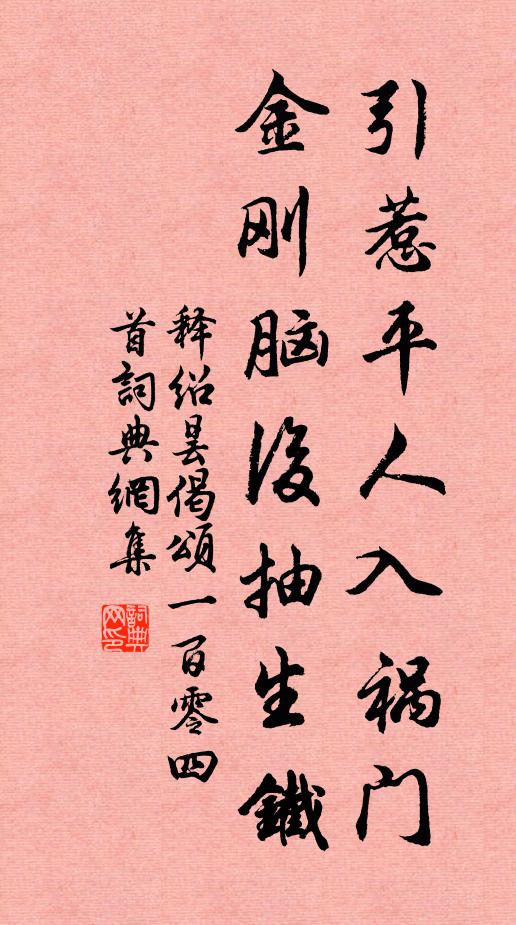 引惹平人入祸门
金刚脑后抽生鐵
释绍昙偈頌一百零四
首詞典網集
詞典
网印